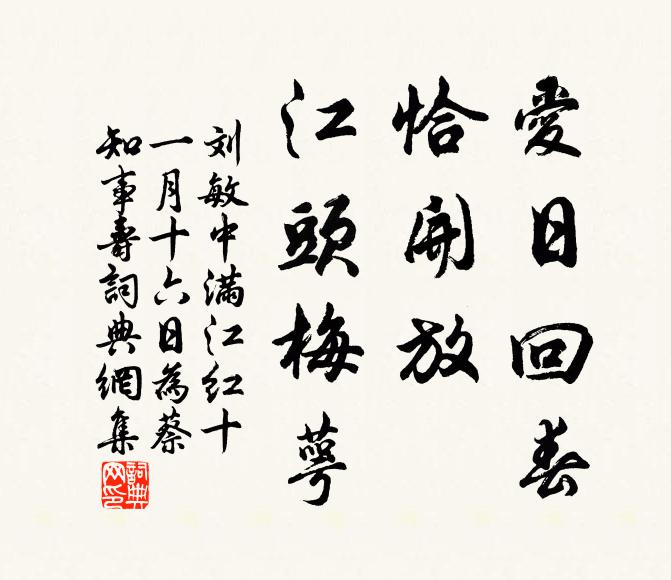 愛日回春
恰開放
江頭梅萼
刘敏中满江红十
一月十六日為蔡
知事壽詞典網集
詞典网印